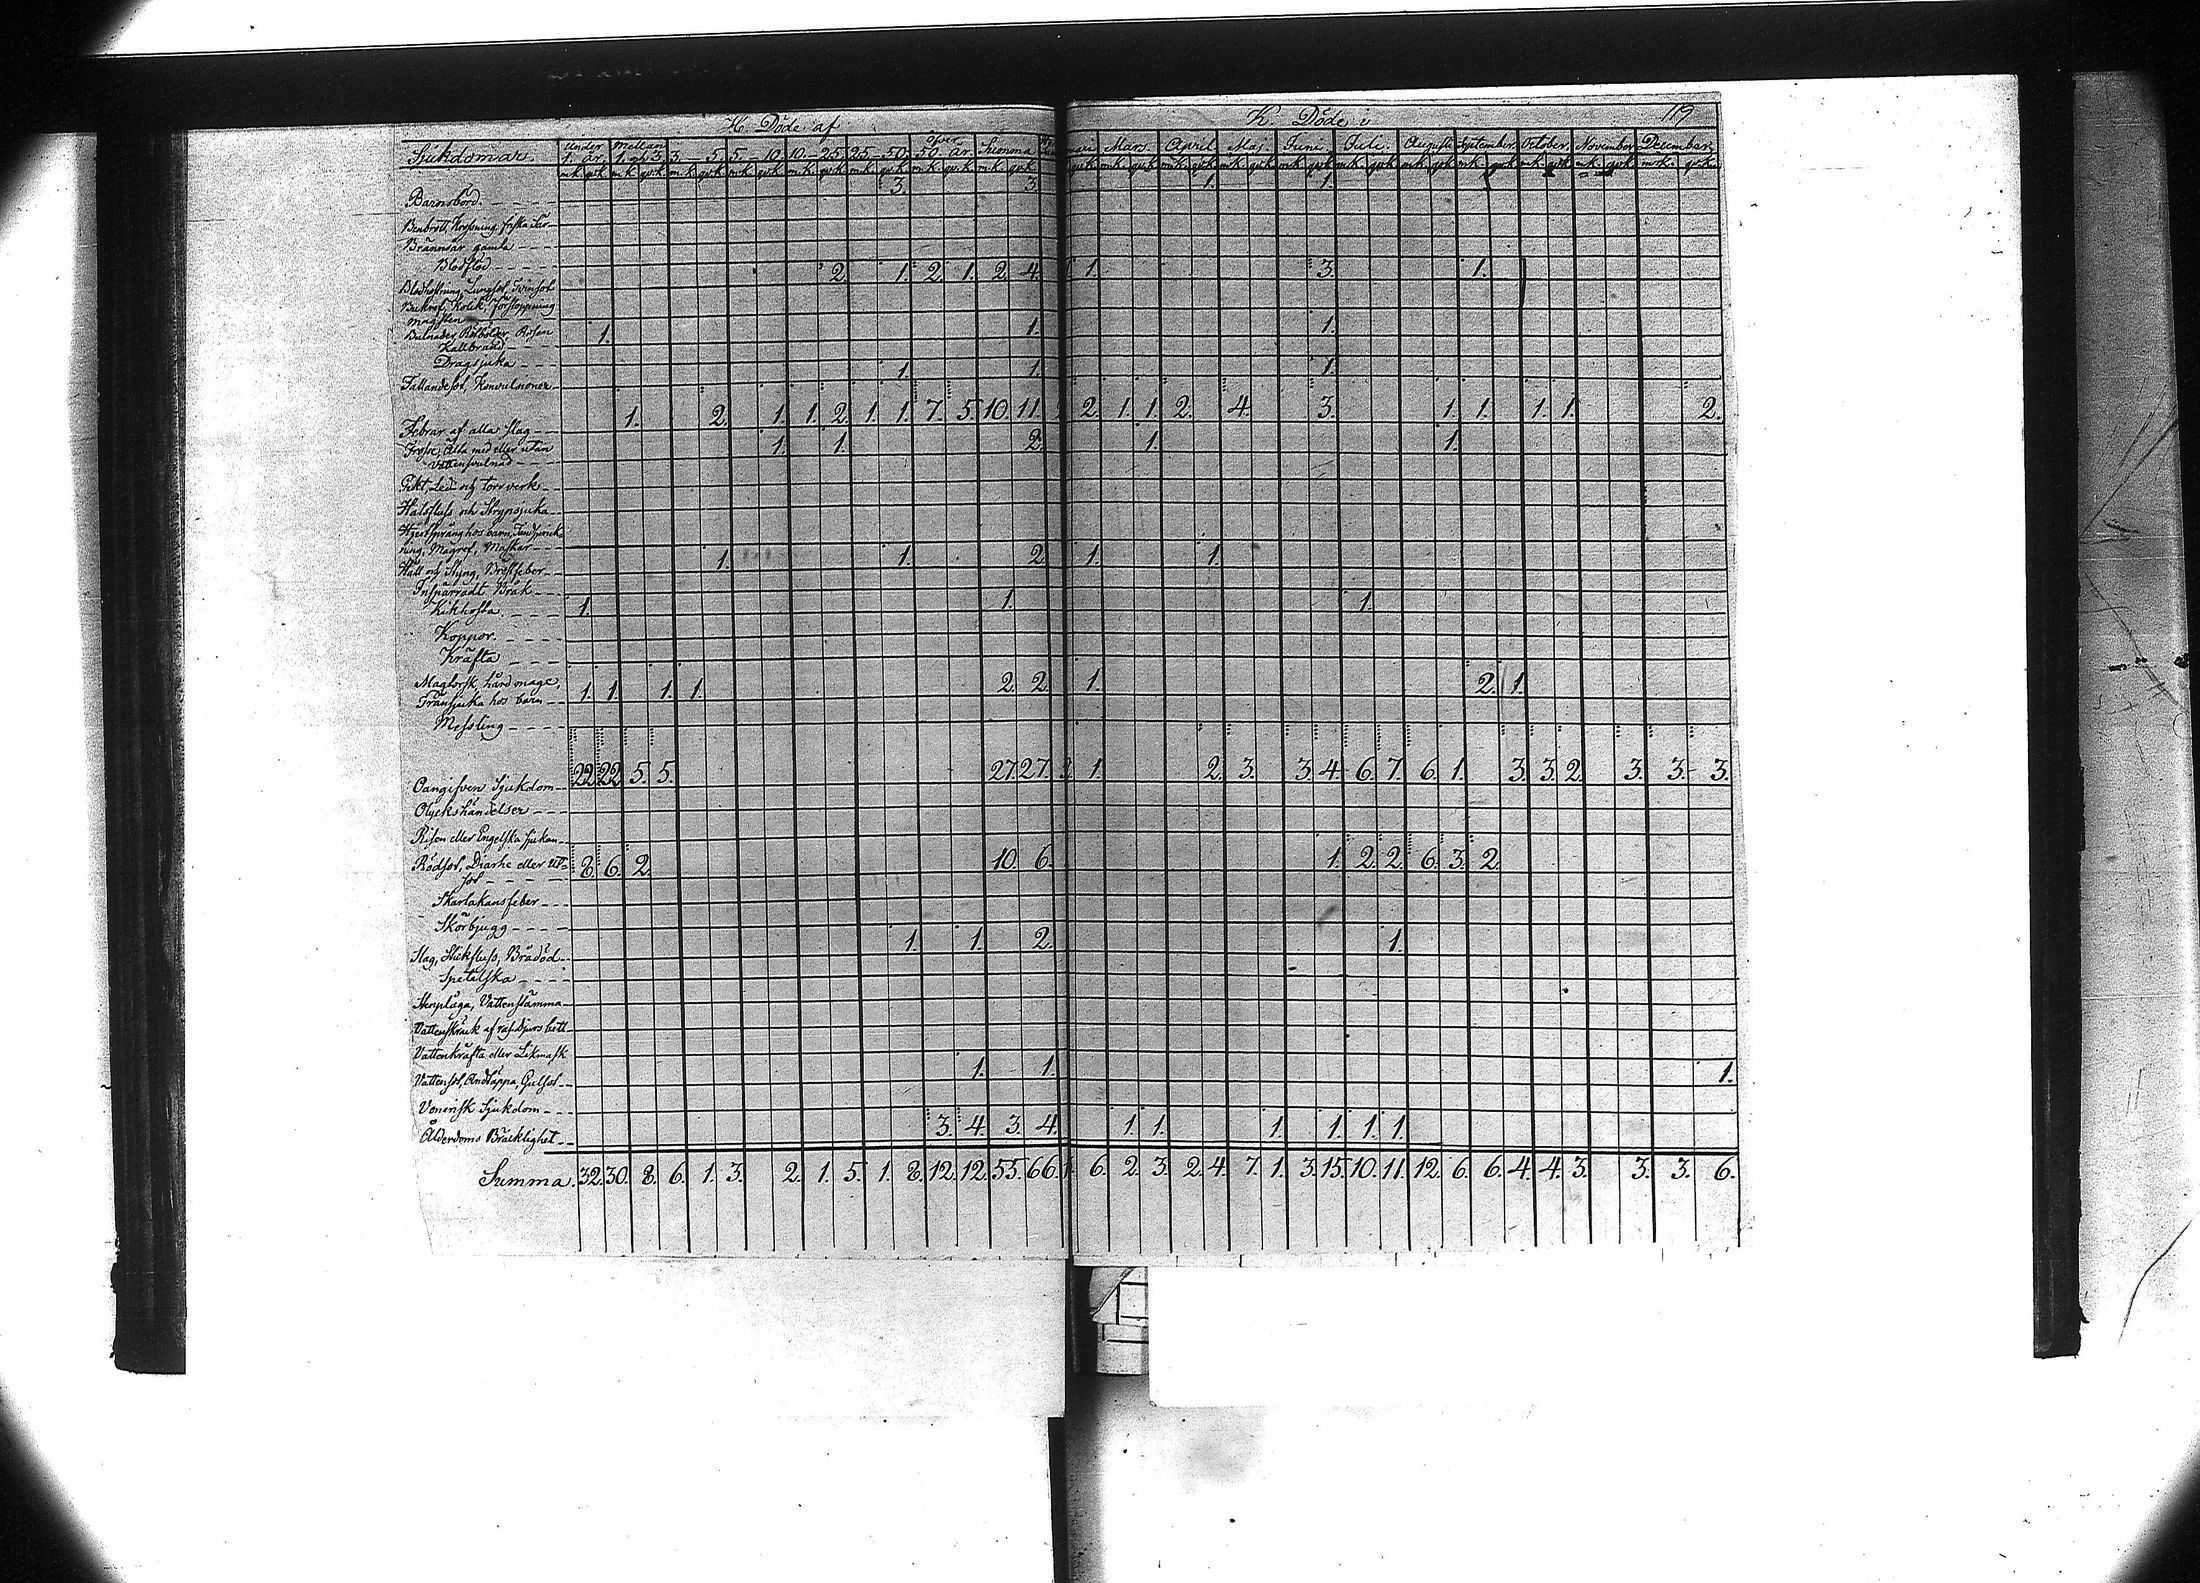 H. Döde af
K. Döde i 119
Sjukdomar. Under 1. år. Mellan 1. och 3. 3. — 5. 5. — 10. 10. — 25. 25. — 50. öfver 50. år. Summa Mars April Maj Juni Juli Augusti September October November December
mk. qvk. mk. qvk. mk. qvk. mk. qvk. mk. qvk. mk. qvk. mk. qvk. mk. qvk. qvk mk. qvk. mk. qvk. mk. qvk. mk. qvk. mk. qvk. mk. qvk. mk. qvk. mk. qvk. mk. qvk. mk. qvk.
Barnsbörd. 3. 3. 1. 1. 1
Benbrott, Krossning, färska Sår
Brännsår gamla
Blodflöd
Blodhostning, Lungsot, Tvinsot 2. 1. 2. 1. 2. 4. 1. 3. 1.
Bukref, Kolik, förstoppning
magsten
Bulnader, Bölder, Rosen 1. 1. 1.
Kallbrand
Dragsjuka
Fallandesot, Konvulsioner 1. 1. 1.
Febrar af alla slag 1. 2. 1. 1. 2. 1. 1. 7. 5. 10. 11. 2. 1. 1. 2. 4. 3. 1. 1. 1. 1. 2.
Frossa, Älta med eller utan 1. 1. 2. 1. 1.
Vattensvulnad
Gikt, Led och torrverk
Halsfluss och Strypsjuka
Hjertsprång hos barn, Tandsprick-
ning, Magref, Maskar
Håll och Styng, Bröstfeber 1. 1. 2. 1. 1.
Inspärradt Bråk
Kikhosta 1. 1. 1.
Koppor.
Kräfta
Magtorsk, hård mage, 1. 1. 1. 1. 2. 2. 1. 2. 1.
Tränsjuka hos barn
Messling
Oangifven Sjukdom 22. 22. 5. 5. 27. 27. 1. 2. 3. 3. 4. 6. 7. 6. 1. 3. 3. 2. 3. 3. 3.
Olyckshändelser
Risen eller Engelska sjukan
Rödsot, Diarhe eller Ut- 8. 6. 2. 10. 6. 1. 2. 2. 6. 3. 2.
sot
Skarlakansfeber
Skörbjugg
Slag, Stickfluss, Brådöd 1. 1. 2. 1.
Spetelska
Stenplåga, Vattenstämma
Vattenskräck af rasa. djurs bett
Vattenkräfta eller Likmask
Vattensot, Andtäppa, Gulsot 1. 1. 1.
Venerisk Sjukdom
Ålderdoms Bräcklighet 3. 4. 3. 4. 1. 1. 1. 1. 1. 1.
Summa. 32. 30. 8. 6. 1. 3. 2. 1. 5. 1. 8. 12. 12. 55. 66. 6. 2. 3. 2. 4. 7. 1. 3. 15. 10. 11. 12. 6. 6. 4. 4. 3. 3. 3. 6.